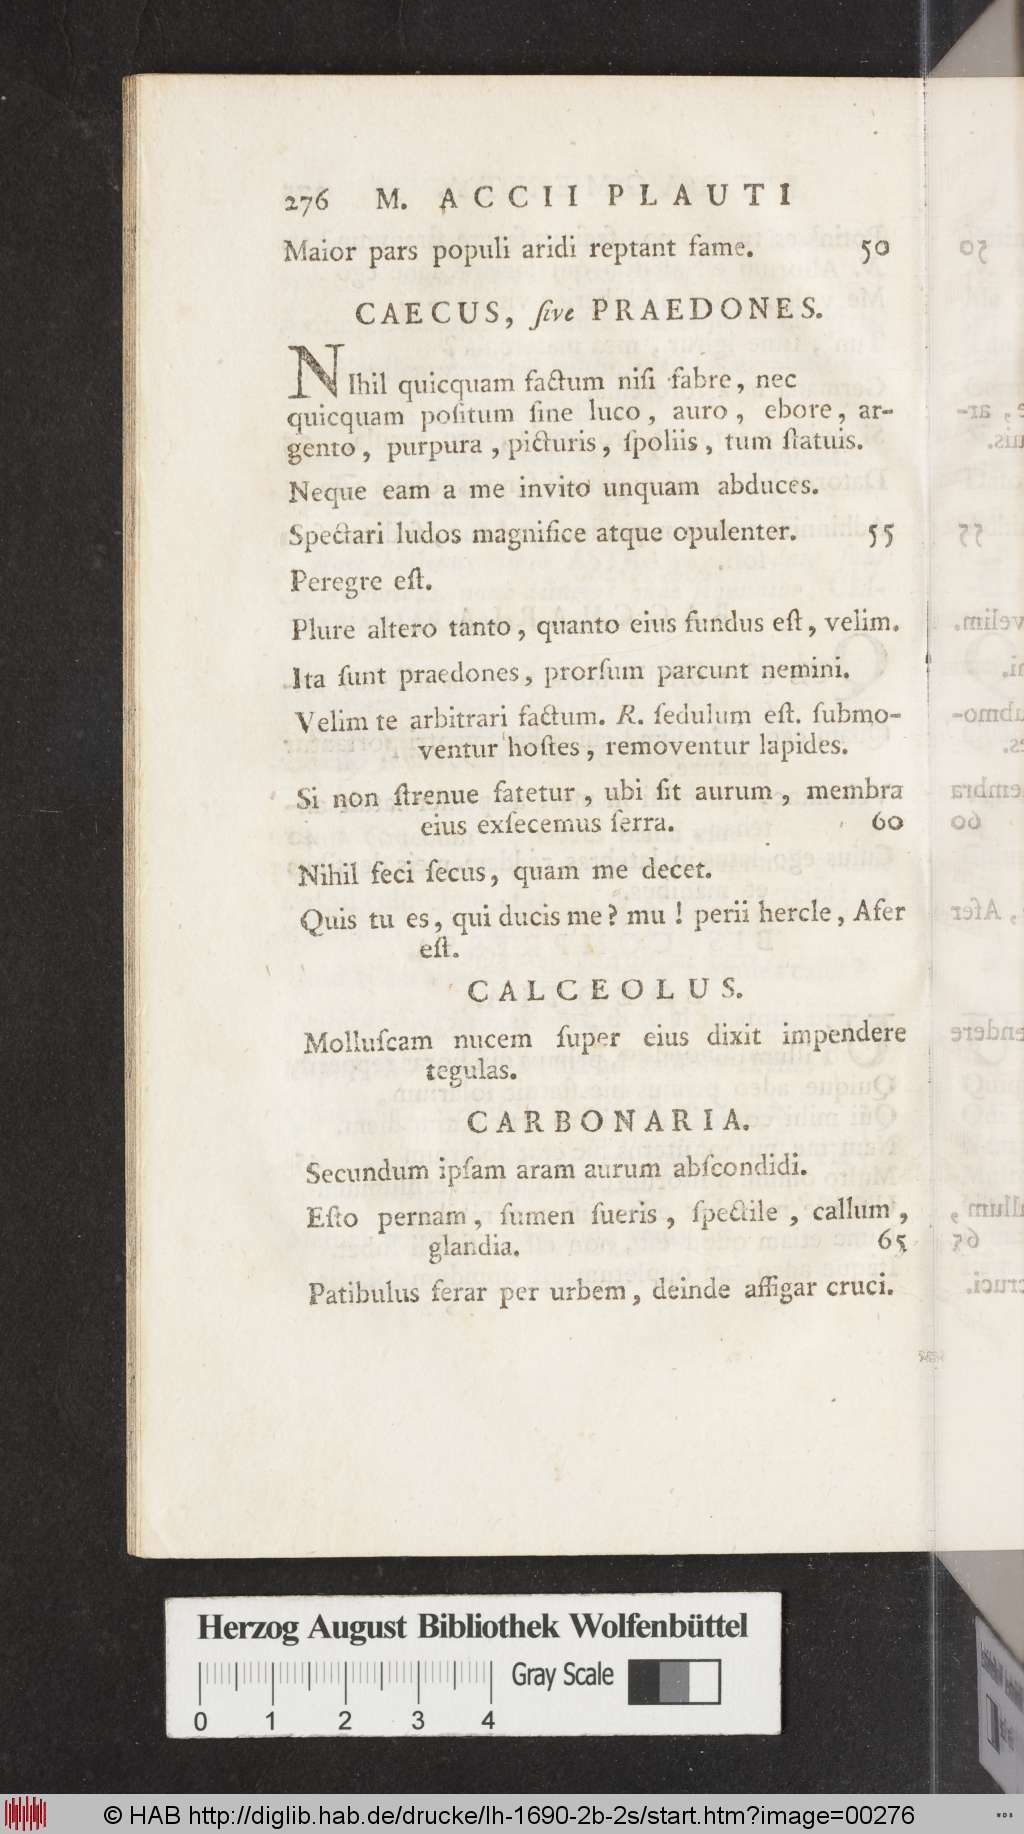 276 M. ACCII PLAUTI
Maior pars populi aridi reptant fame. 50
CAECUS, ſive PRAEDONES.
NIhil quicquam factum niſi fabre, nec
quicquam poſitum ſine luco, auro, ebore, ar-
gento, purpura, picturis, ſpoliis, tum ſtatuis.
Neque eam a me invito unquam abduces.
Spectari ludos magnifice atque opulenter. 55
Peregre eſt.
Plure altero tanto, quanto eius fundus eſt, velim.
Ita ſunt praedones, prorſum parcunt nemini.
Velim te arbitrari factum. R. ſedulum eſt. ſubmo-
ventur hoſtes, removentur lapides.
Si non ſtrenue fatetur, ubi ſit aurum, membra
eius exſecemus ſerra. 60
Nihil feci ſecus, quam me decet.
Quis tu es, qui ducis me? mu! perii hercle, Afer
eſt.
CALCEOLUS.
Molluſcam nucem ſuper eius dixit impendere
tegulas.
CARBONARIA.
Secundum ipſam aram aurum abſcondidi.
Eſto pernam, ſumen ſueris, ſpectile, callum,
glandia. 65
Patibulus ferar per urbem, deinde affigar cruci.
Herzog August Bibliothek Wolfenbüttel
Gray Scale
0 1 2 3 4
© HAB http://diglib.hab.de/drucke/lh-1690-2b-2s/start.htm?image=00276